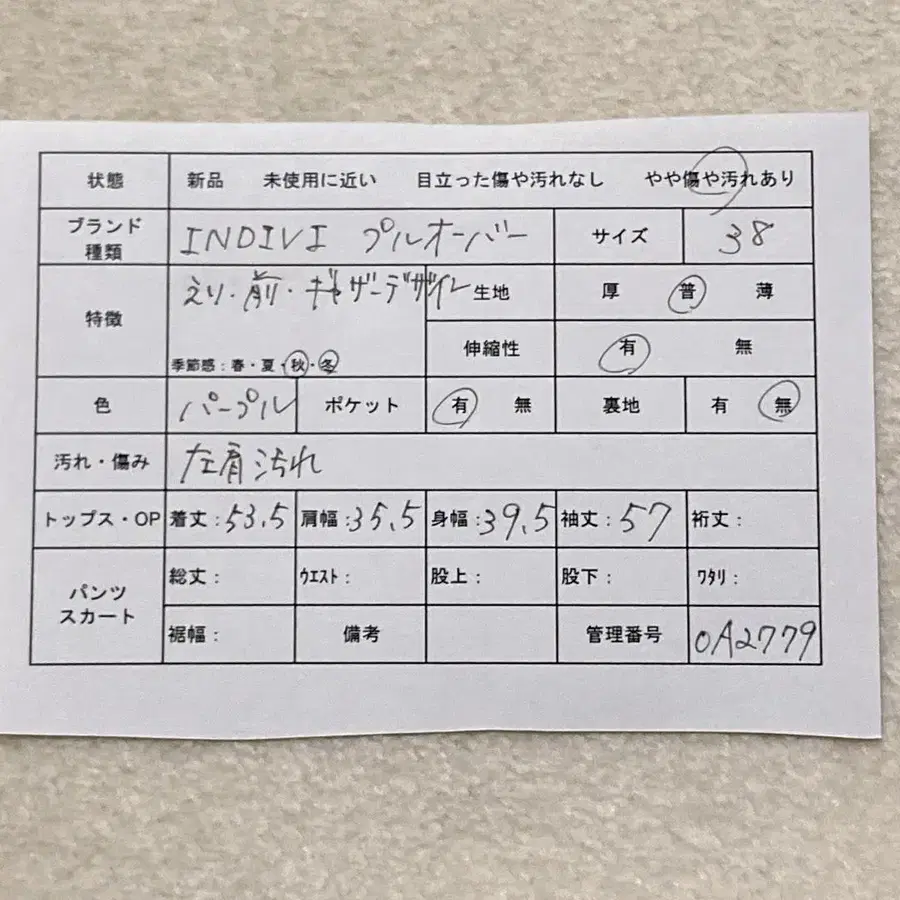 状態 新品 未使用に近い 目立った傷や汚れなし やや傷や汚れあり
ブランド 種類 INDIVI プルオーバー サイズ 38
特徴 えり・前・ギャザーデザイン 生地 厚 普 薄
伸縮性 有 無
季節感:春・夏・秋・冬
色 パープル ポケット 有 無 裏地 有 無
汚れ・傷み 左肩汚れ
トップス・OP 着丈:53.5 肩幅:35.5 身幅:39.5 袖丈:57 裄丈:
パンツ スカート 総丈: ウエスト: 股上: 股下: ワタリ:
裾幅: 備考 管理番号 0A2779